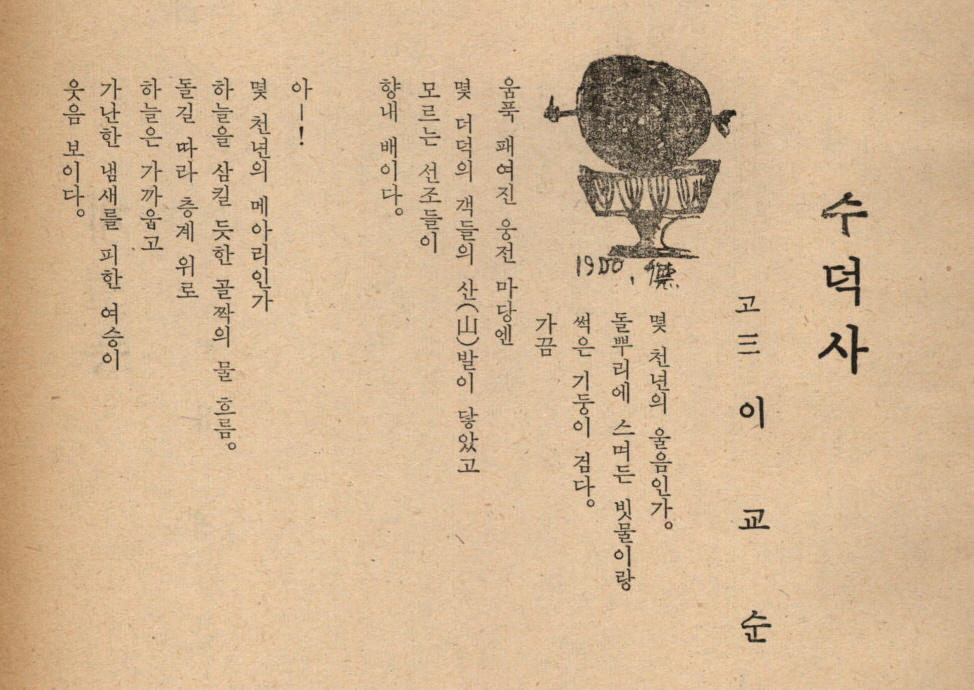 수덕사
고三 이교순
몇 천년의 울음인가。
돌뿌리에 스며든 빗물이랑
썩은 기둥이 검다。
가끔
움푹 패여진 웅전 마당엔
몇 더덕의 객들의 산(山)발이 닿았고
모르는 선조들이
향내 배이다。
아ー!
몇 천년의 메아리인가
하늘을 삼킬 듯한 골짝의 물 흐름。
돌길 따라 층계 위로
하늘은 가까웁고
가난한 냄새를 피한 여승이
웃음 보이다。